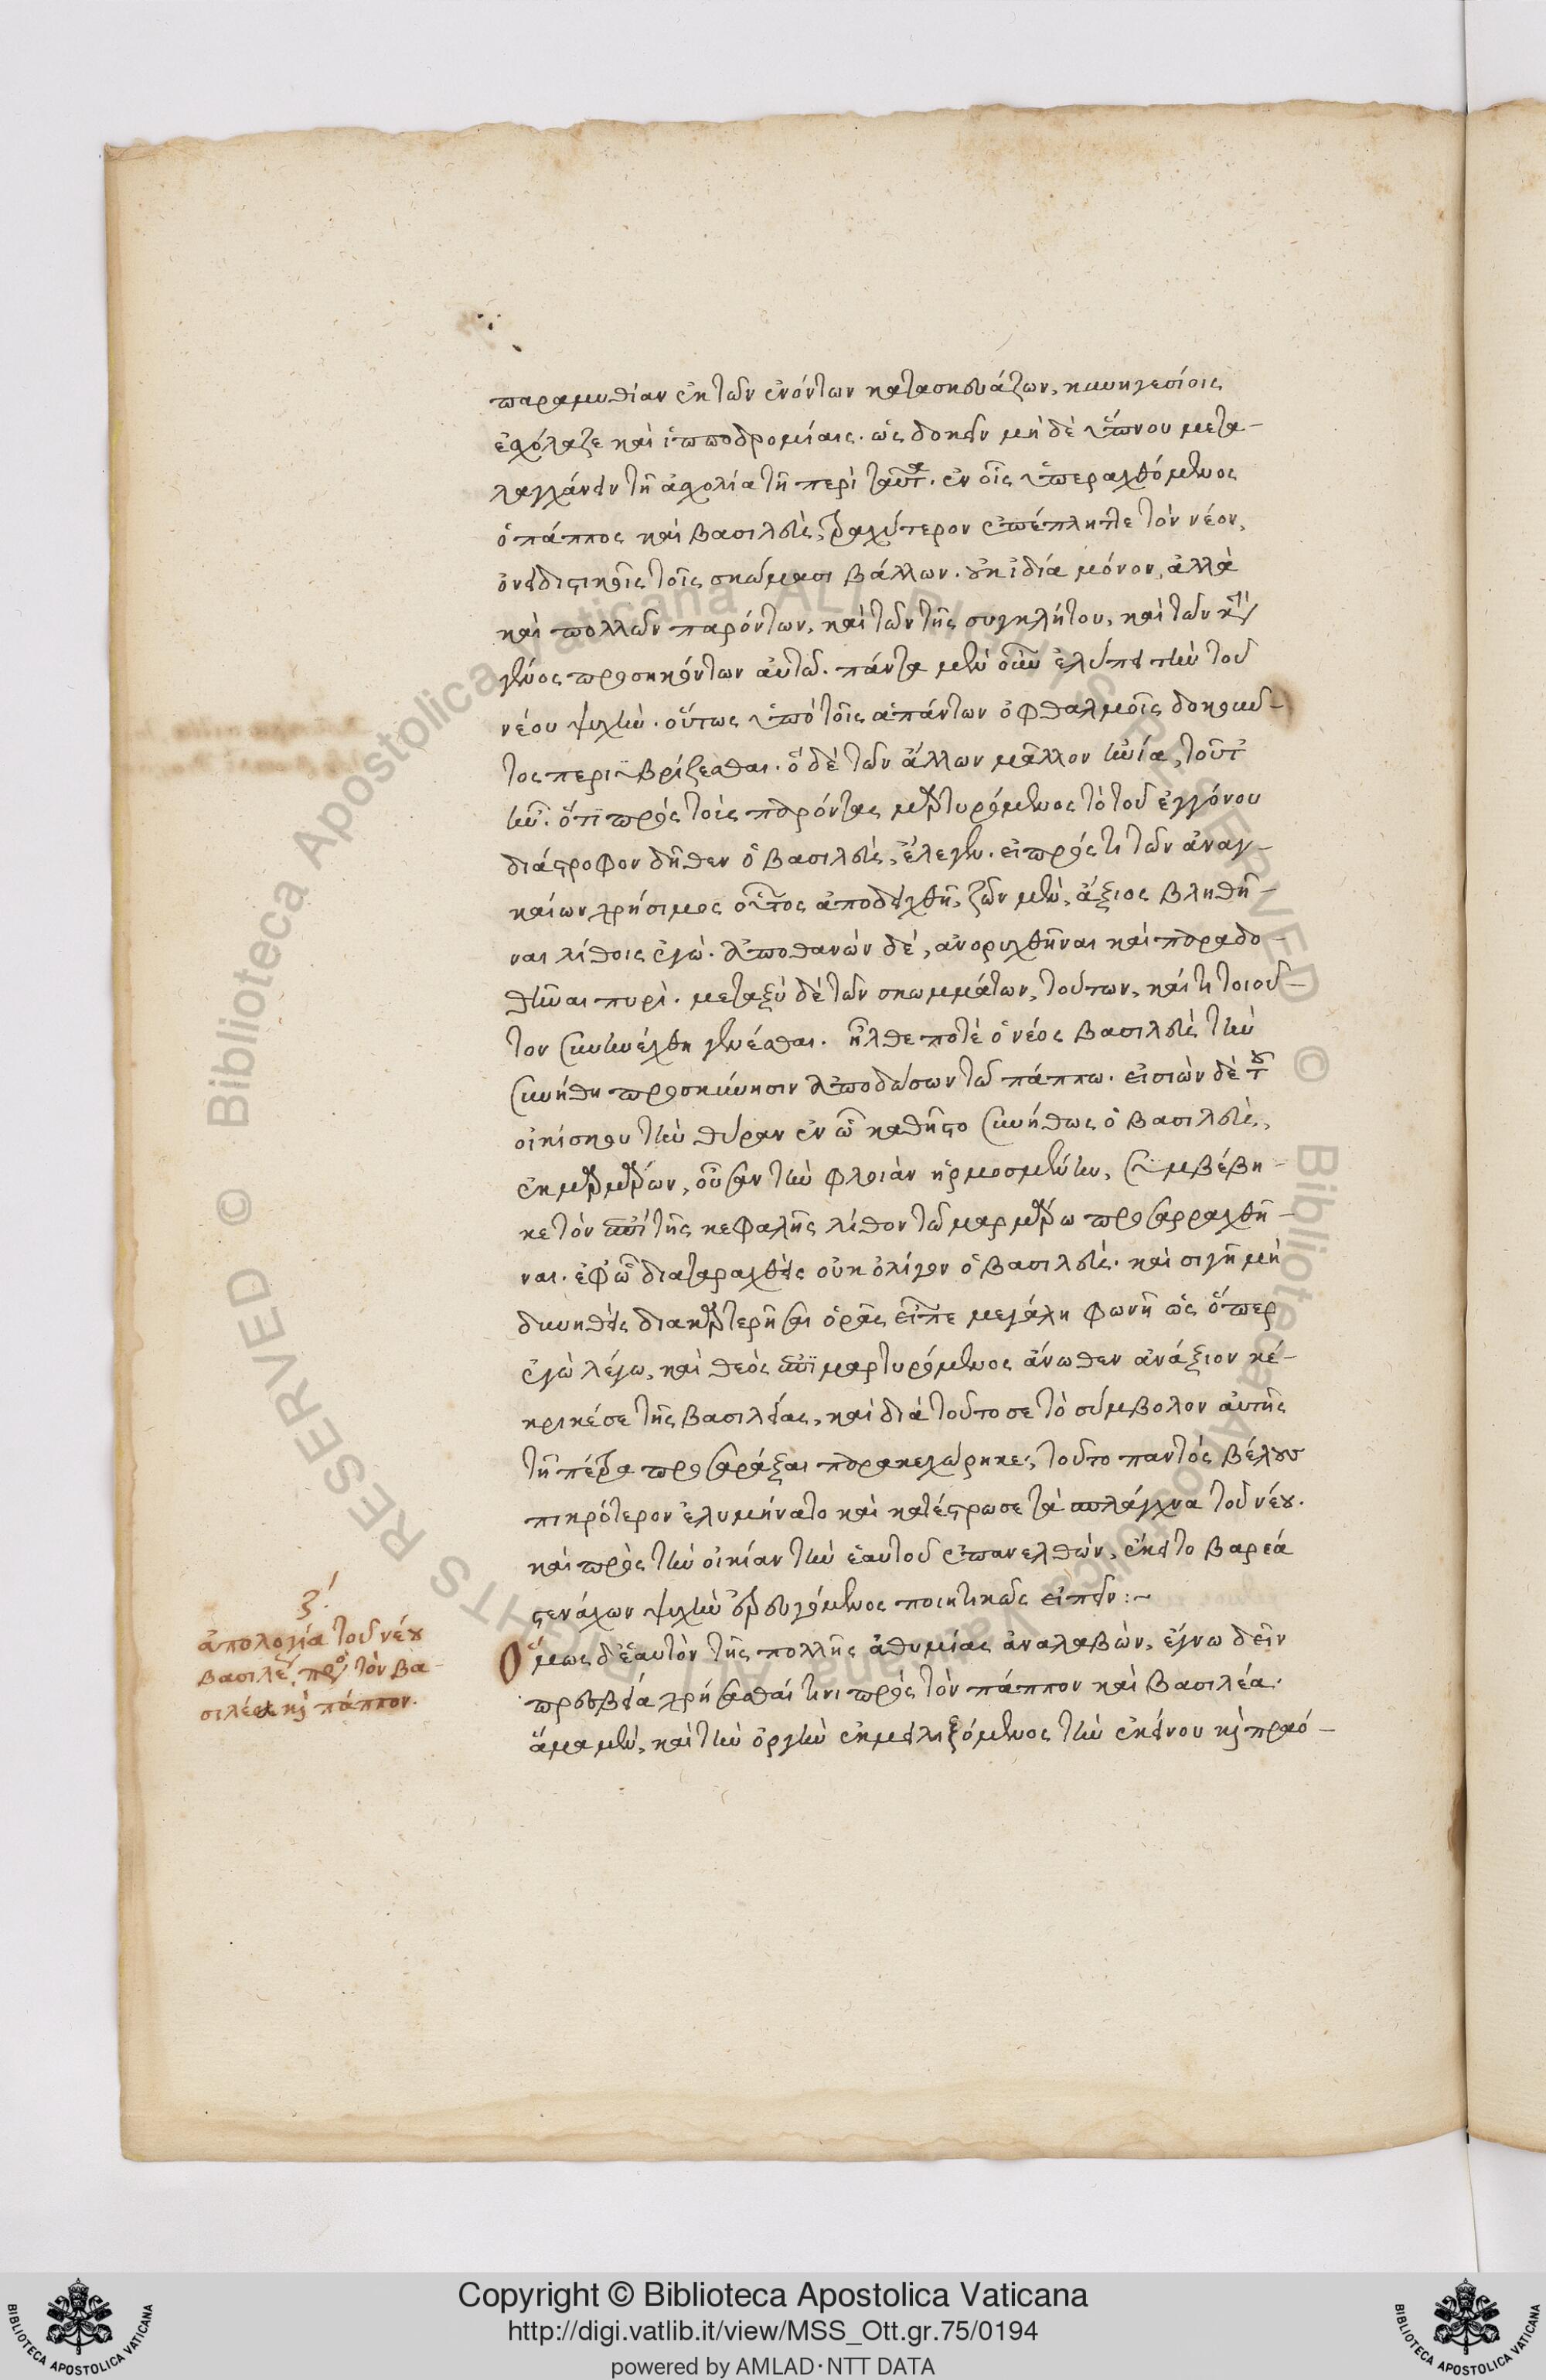 παραμυθίαν ἐκ τῶν ἐνόντων κατασκευάζων, κυνηγεσίοις
ἐσχόλαζε καὶ ἱπποδρομίαις. ὡς δοκεῖν μὴ δὲ ὕπνου μετα-
λαγχάνειν τῇ ἀσχολία τῇ περὶ ταῦτα. ἐν οἷς ὑπεραχθόμενος
ὁ πάππος καὶ βασιλεὺς, τραχύτερον ἐπέπληττε τὸν νέον,
ὀνειδιστικοῖς τοῖς σκώμασι βάλλων. οὐκ ἰδία μόνον, ἀλλὰ
καὶ πολλῶν παρόντων, καὶ τῶν τῆς συγκλήτου, καὶ τῶν κατὰ
γένος προσηκόντων αὐτῶ. πάντα μὲν οὖν ἐλύπει τὴν τοῦ
νέου ψυχὴν. οὕτως ὑπὸ τοῖς ἁπάντων ὀφθαλμοῖς δοκοῦν-
τος περιϋβρίζεσθαι. ὃ δὲ τῶν ἄλλων μᾶλλον ἠνία, τοῦτ'
ἦν. ὅτι πρὸς τοὺς παρόντας μαρτυρόμενος τὸ τοῦ ἐγγόνου
διάστροφον δῆθεν ὁ βασιλεὺς, ἔλεγεν. εἰ πρός τι τῶν ἀναγ-
καίων χρήσιμος οὗτος ἀποδειχθῆ, ζῶν μὲν, ἄξιος βληθῆ-
ναι λίθοις ἐγώ. ἀποθανὼν δὲ, ἀνορυχθῆναι καὶ παραδο-
θῆναι πυρὶ. μεταξὺ δὲ τῶν σκωμμάτων, τούτων, καί τι τοιοῦ-
τον συνηνέχθη γενέσθαι. ἦλθε ποτὲ ὁ νέος βασιλεὺς τὴν
συνήθη προσκύνησιν ἀποδώσων τῶ πάππω. εἰσιὼν δὲ τοῦ
οἰκίσκου τὴν θύραν ἐν ὧ καθῆστο συνήθως ὁ βασιλεὺς,
ἐκ μαρμάρων, οὖσαν τὴν φλοιὰν ἡρμοσμένην, συμβέβη-
κε τὸν ἐπὶ τῆς κεφαλῆς λίθον τῶ μαρμάρω προσαρραχθῆ-
ναι. ἐφ' ὧ διαταραχθεὶς οὐκ ὀλίγον ὁ βασιλεὺς. καὶ σιγῆ μὴ
δυνηθεὶς διακαρτερῆσαι ὁρᾶς εἶπε μεγάλη φωνῆ ὡς ὅπερ
ἐγὼ λέγω, καὶ θεὸς ἐπιμαρτυρόμενος ἄνωθεν ἀνάξιον κέ-
κρικέ σε τῆς βασιλείας, καὶ διὰ τοῦτο σε τὸ σύμβολον αὐτῆς
τῆ πέτρα προσαράξαι παρακεχώρηκε, τοῦτο παντὸς βέλους
πικρότερον ἐλυμήνατο καὶ κατέστρωσε τὰ σπλάγχνα τοῦ νέου.
καὶ πρὸς τὴν οἰκίαν τὴν ἑαυτοῦ ἐπανελθὼν, ἔκειτο βαρέα
στενάχων ψυχὴν ἐρευγόμενος ποιητικῶς εἰπεῖν:~
Ὅμως δ' ἑαυτὸν τῆς πολλῆς ἀθυμίας ἀναλαβὼν, ἔγνω δεῖν
πρεσβεία χρήσασθαί τινι πρὸς τὸν πάππον καὶ βασιλέα.
ἅμα μὲν, καὶ τὴν ὀργὴν ἐκμειλιξόμενος τὴν ἐκείνου κὶ πραό-
ζ'.
ἀπολογία τοῦ νέου
βασιλέ πρὸ τὸν βα-
σιλέα κὶ πάππον.
Copyright © Biblioteca Apostolica Vaticana
http://digi.vatlib.it/view/MSS_Ott.gr.75/0194
powered by AMLAD·NTT DATA
BIBLIOTECA APOSTOLICA VATICANA
BIBLIOTECA APOSTOLICA VATICANA
© Biblioteca Apostolica Vaticana ALL RIGHTS RESERVED © Biblioteca Apostolica Vaticana ALL RIGHTS RESERVED